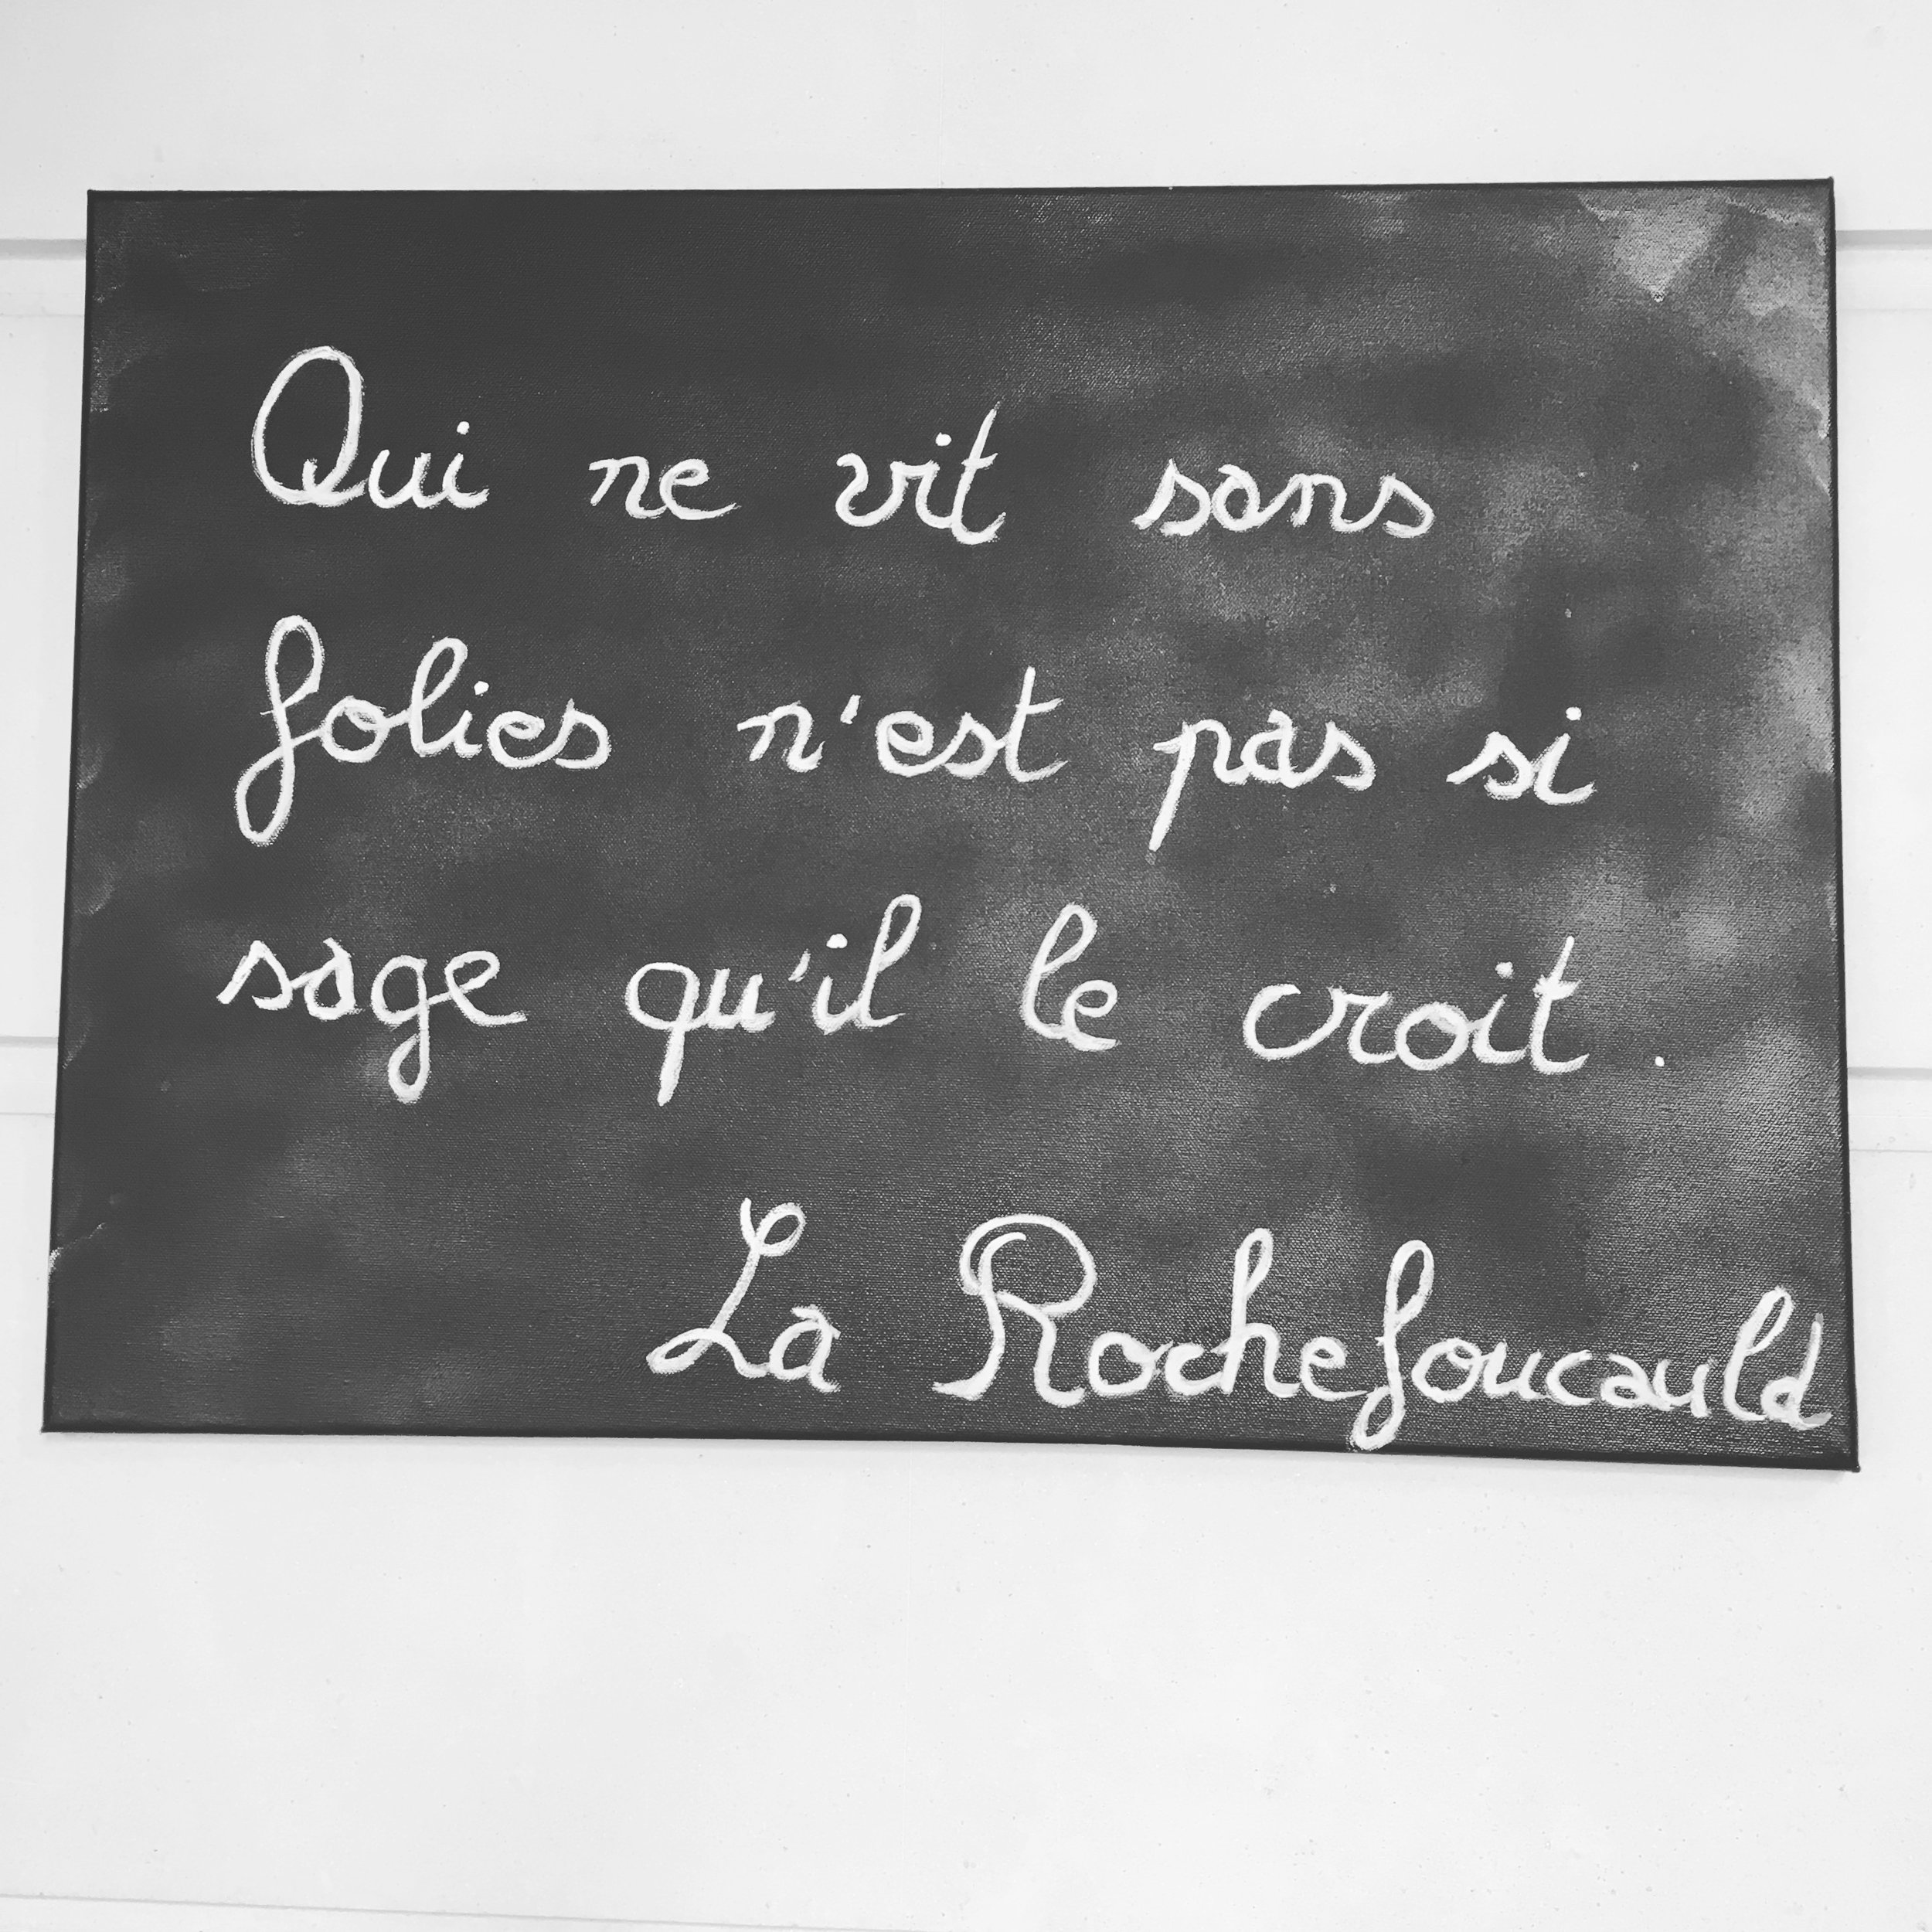 Qui ne vit sans
folies n'est pas si
sage qu'il le croit.
La Rochefoucauld